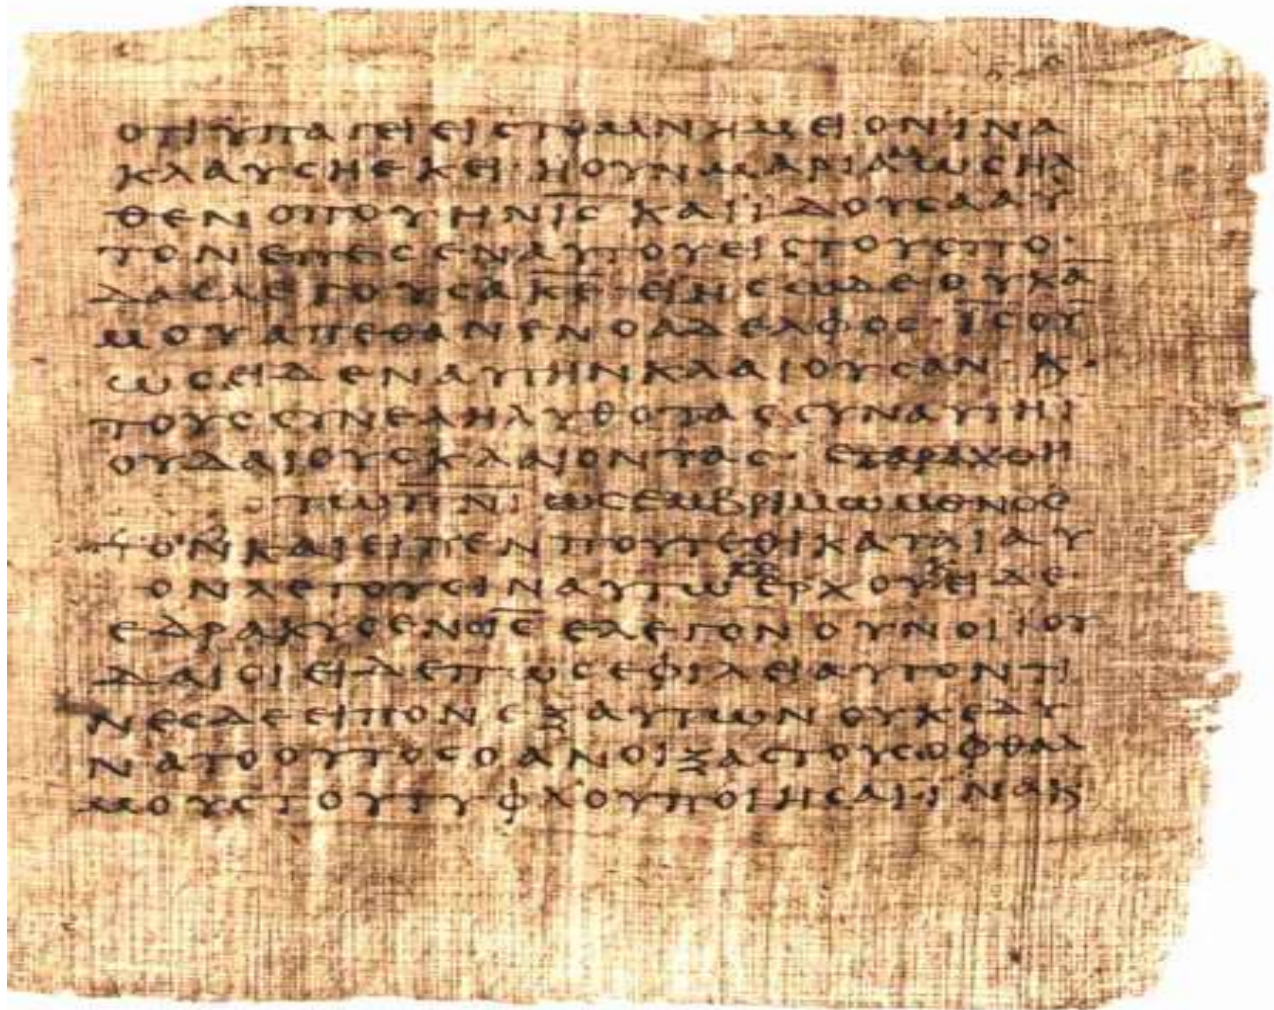 ΟΤΙΫΠΑΓΕΙΕΙϹΤΟΜΝΗΜΕΙΟΝΪΝΑ
ΚΛΑΥϹΗΕΚΕΙ·ΗΟΥΝΜΑΡΙΑΜΩϹΗΛ
ΘΕΝΟΠΟΥΗΝΙ̅Ϲ̅ΚΑΙΪΔΟΥϹΑΑΥ
ΤΟΝΕΠΕϹΕΝΑΥΤΟΥΕΙϹΤΟΥϹΠΟ·
ΔΑϹΛΕΓΟΥϹΑΚ̅Ε̅ΕΙΗϹΩΔΕΟΥΚΑ̅
ΜΟΥΑΠΕΘΑΝΕΝΟΑΔΕΛΦΟϹ·Ι̅Ϲ̅ΟΥ̅
ΩϹΕΙΔΕΝΑΥΤΗΝΚΛΑΙΟΥϹΑΝ·Κ·
ΤΟΥϹϹΥΝΕΛΗΛΥΘΟΤΑϹϹΥΝΑΥΤΗΙ
ΟΥΔΑΙΟΥϹΚΛΑΙΟΝΤΑϹ·ΕΤΑΡΑΧΘΗ
ΤΩΠ̅Ν̅Ι̅ΩϹΕΜΒΡΙΜΩΜΕΝΟϹ
ΚΑΙΕΙΠΕΝΠΟΥΤΕΘΙΚΑΤΑΙΑΥ
ΟΝΛΕΓΟΥϹΙΝΑΥΤΩΚΕΕΡΧΟΥΚΕΙΔΕ
ΕΔΡΑΚΥϹΕΝΟΙ̅Ϲ̅ΕΛΕΓΟΝΟΥΝΟΙΪΟΥ
ΔΑΙΟΙΕΙΔΕΠΩϹΕΦΙΛΕΙΑΥΤΟΝΤΙ
ΝΕϹΔΕΕΙΠΟΝΕΞΑΥΤΩΝΟΥΚΕΔΥ
ΝΑΤΟΟΥΤΟϹΟΑΝΟΙΞΑϹΤΟΥϹΟΦΘΑΛ
ΜΟΥϹΤΟΥΤΥΦΛΟΥΠΟΙΗϹΑΙ·ΪΝΑΚ